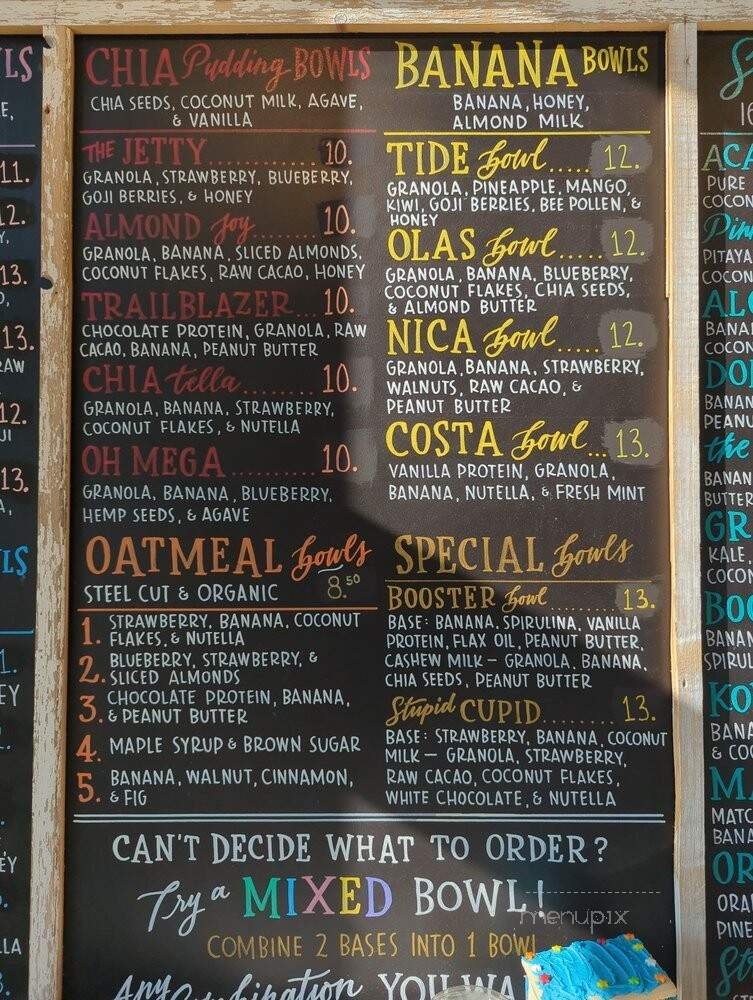 CHIA Pudding BOWLS
CHIA SEEDS, COCONUT MILK, AGAVE,
& VANILLA
THE JETTY............10.
GRANOLA, STRAWBERRY, BLUEBERRY,
GOJI BERRIES, & HONEY
ALMOND Joy......10.
GRANOLA, BANANA, SLICED ALMONDS,
COCONUT FLAKES, RAW CACAO, HONEY
TRAILBLAZER...10.
CHOCOLATE PROTEIN, GRANOLA, RAW
CACAO, BANANA, PEANUT BUTTER
CHIA tella........10.
GRANOLA, BANANA, STRAWBERRY,
COCONUT FLAKES, & NUTELLA
OH MEGA.........10.
GRANOLA, BANANA, BLUEBERRY,
HEMP SEEDS, & AGAVE
OATMEAL bowls
STEEL CUT & ORGANIC 8.50
1. STRAWBERRY, BANANA, COCONUT
FLAKES, & NUTELLA
2. BLUEBERRY, STRAWBERRY, &
SLICED ALMONDS
3. CHOCOLATE PROTEIN, BANANA,
& PEANUT BUTTER
4. MAPLE SYRUP & BROWN SUGAR
5. BANANA, WALNUT, CINNAMON,
& FIG
BANANA BOWLS
BANANA, HONEY,
ALMOND MILK
TIDE Bowl..... 12.
GRANOLA, PINEAPPLE, MANGO,
KIWI, GOJI BERRIES, BEE POLLEN, &
HONEY
OLAS Bowl..... 12.
GRANOLA, BANANA, BLUEBERRY,
COCONUT FLAKES, CHIA SEEDS,
& ALMOND BUTTER
NICA Bowl..... 12.
GRANOLA, BANANA, STRAWBERRY,
WALNUTS, RAW CACAO, &
PEANUT BUTTER
COSTA Bowl... 13.
VANILLA PROTEIN, GRANOLA,
BANANA, NUTELLA, & FRESH MINT
SPECIAL Bowls
BOOSTER Bowl.........13.
BASE: BANANA, SPIRULINA, VANILLA
PROTEIN, FLAX OIL, PEANUT BUTTER,
CASHEW MILK – GRANOLA, BANANA,
CHIA SEEDS, PEANUT BUTTER
Stupid CUPID.........13.
BASE: STRAWBERRY, BANANA, COCONUT
MILK – GRANOLA, STRAWBERRY,
RAW CACAO, COCONUT FLAKES,
WHITE CHOCOLATE, & NUTELLA
CAN'T DECIDE WHAT TO ORDER?
Try a MIXED BOWL!
menupix
COMBINE 2 BASES INTO 1 BOWL
Any Combination YOU